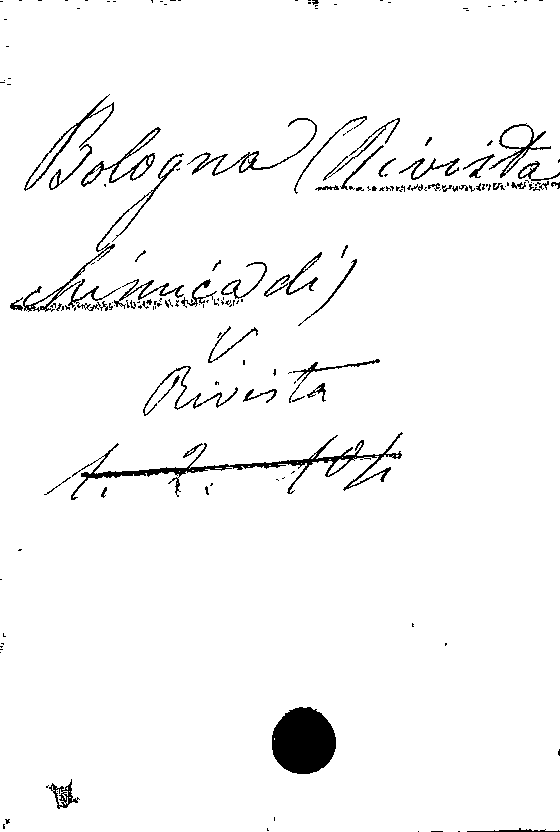 Bologna (Rivista
chimica di)
V.
Rivista
1. 2. 104